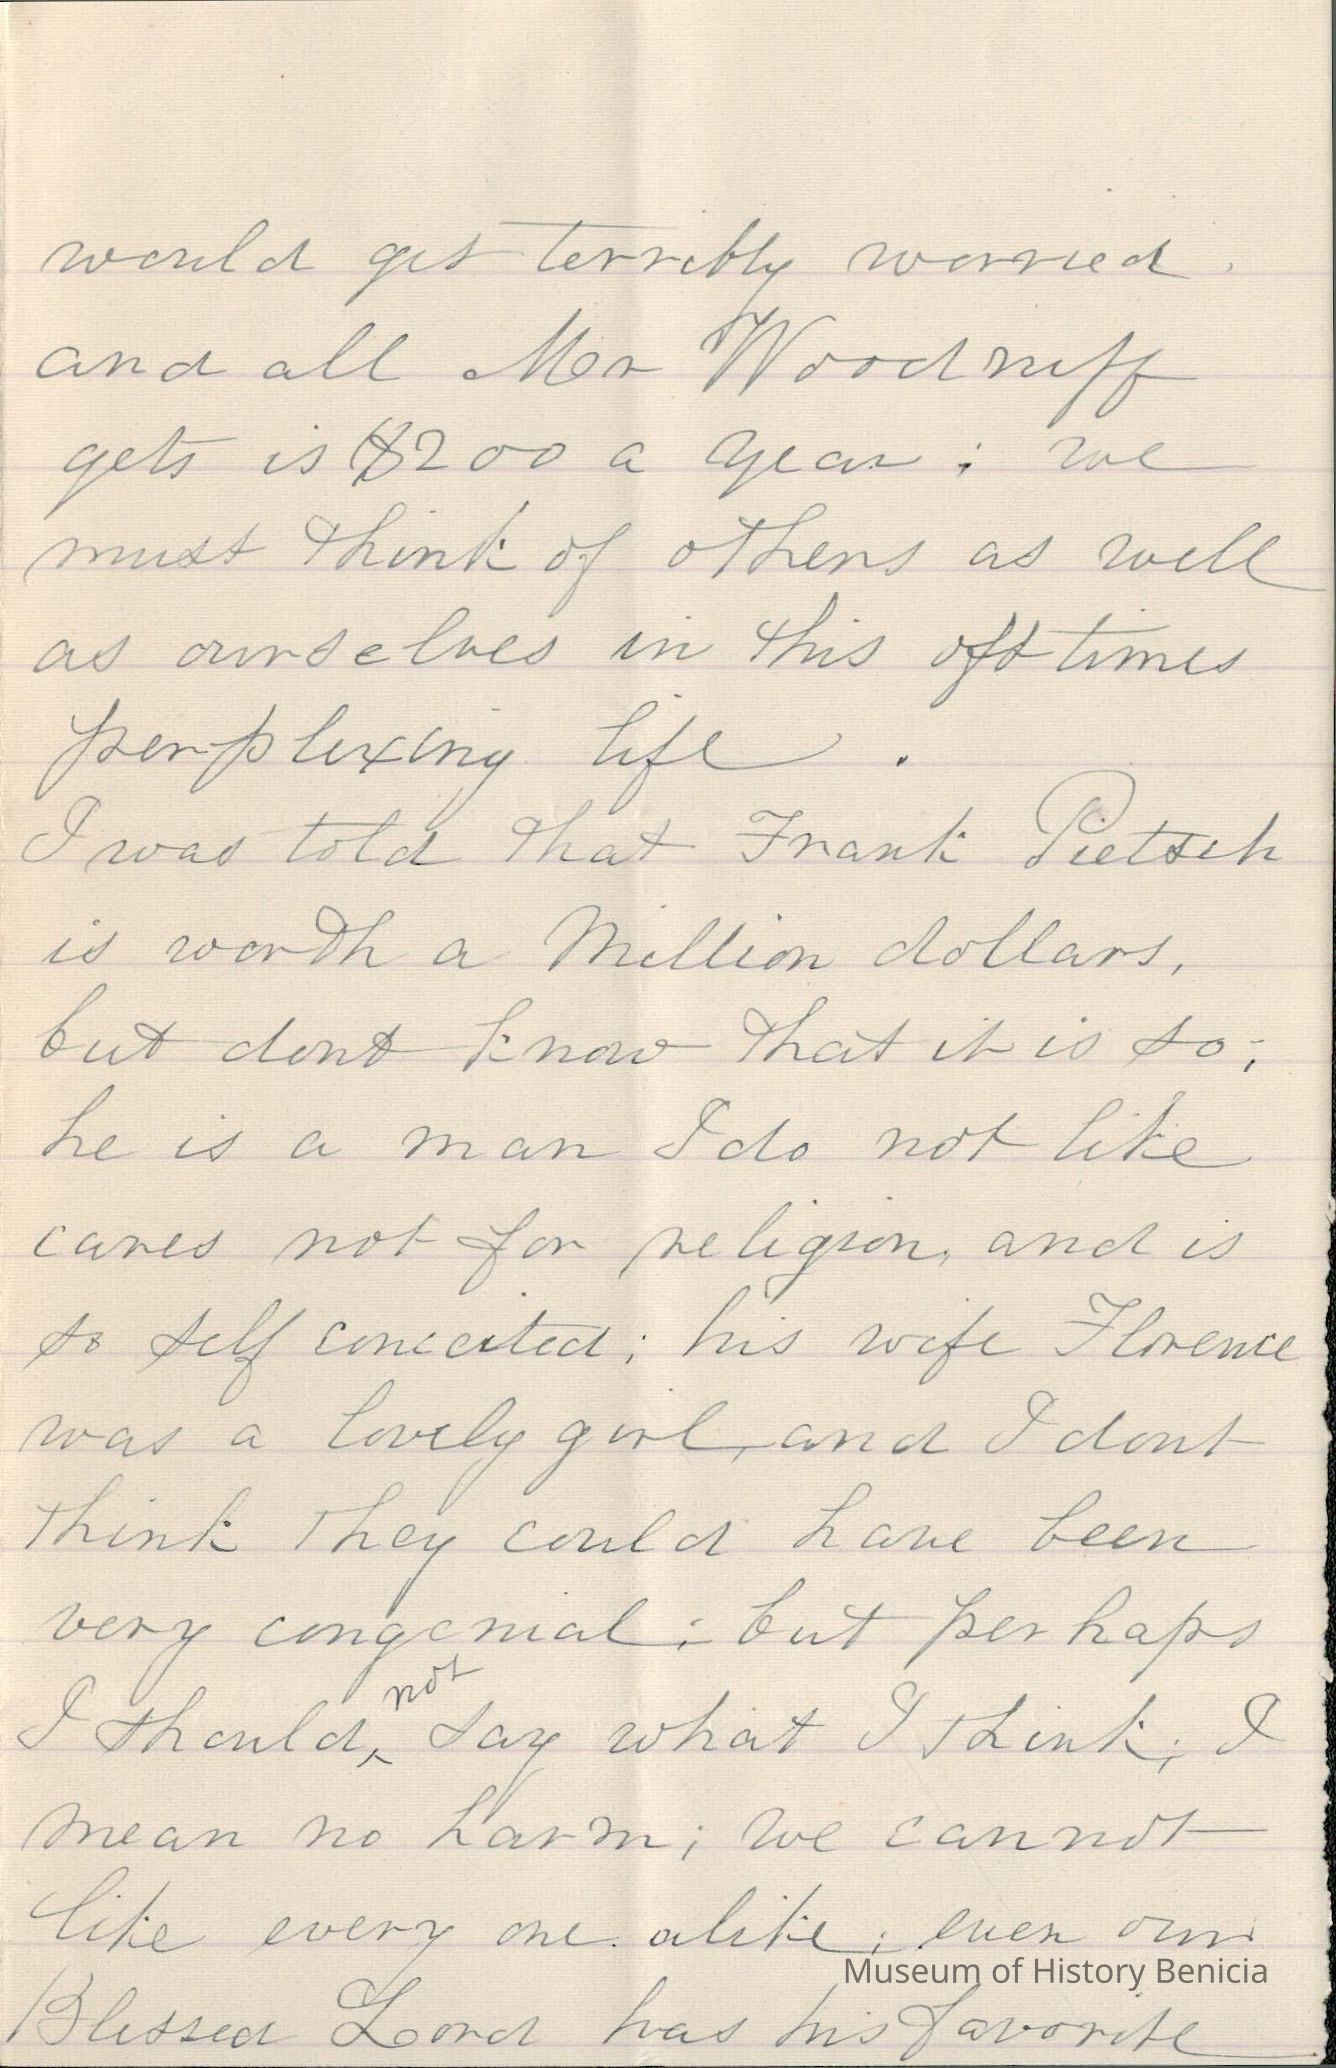 would get terribly worried.
and all Mr Woodruff
gets is $200 a year; we
must think of others as well
as ourselves in this oft times
perplexing life.
I was told that Frank Pietsch
is worth a Million dollars,
but dont know that it is so;
he is a man I do not like
cares not for religion, and is
so self conceited; his wife Florence
was a lovely girl, and I dont
think they could have been
very congenial; but perhaps
not
I should, say what I think; I
mean no harm; we cannot
like every one alike; even our
Museum of History Benicia
Blessed Lord has his favorite